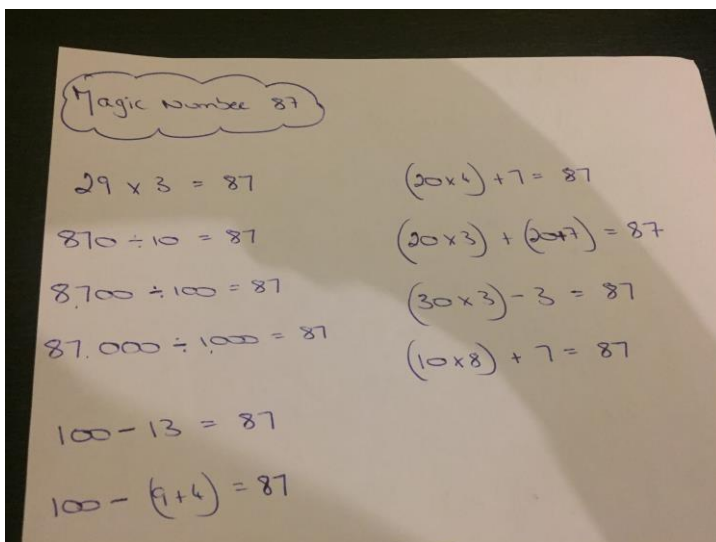 Magic Number 87
29 x 3 = 87
870 ÷ 10 = 87
8,700 ÷ 100 = 87
87,000 ÷ 1,000 = 87
100 - 13 = 87
100 - (9+4) = 87
(20x4) + 7 = 87
(20x3) + (20+7) = 87
(30x3) - 3 = 87
(10x8) + 7 = 87